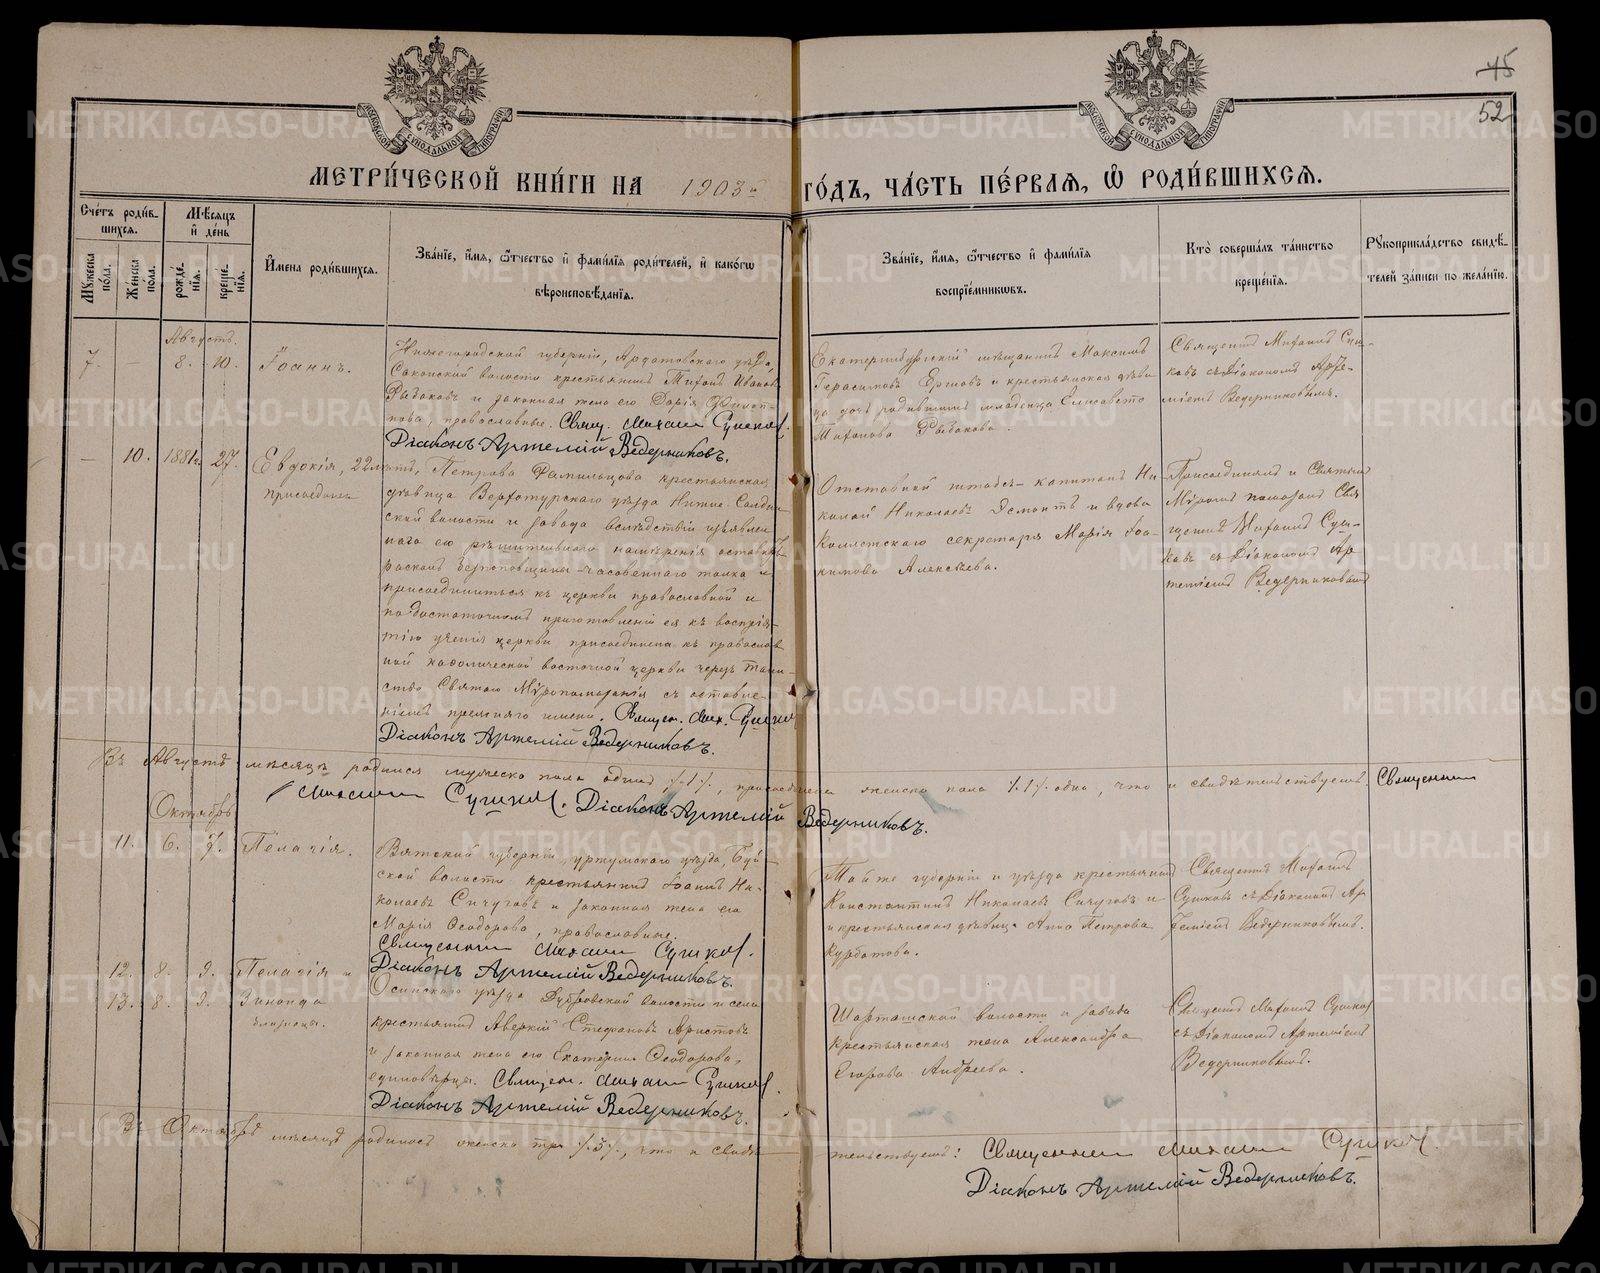 45
52
МЕТРИ́ЧЕСКОЙ КНИ́ГИ НА 1903й ГО́ДЪ, ЧА́СТЬ ПЕ́РВАЯ, Ѡ РОДИ́ВШИХСЯ.
Сче́тъ роди́в-
шихся.
Му́жеска по́ла.
Же́нска по́ла.
Мѣ́сяцъ и де́нь
рожде́нія.
креще́нія.
И́мена роди́вшихся.
Зва́ніе, и́мя, ѻ҆́тчество и фами́лія роди́телей, и како́гѡ
вѣроисповѣ́данія.
Зва́ніе, и́мя, ѻ҆́тчество и фами́лія
воспрїе́мниковъ.
Кто̀ соверша́лъ та́инство
креще́нія.
Рукоприкла́дство свидѣ́-
телей за́писи по жела́нію.
Августъ.
7. – 8. 10. Іоаннъ.
Нижегородской губерніи, Ардатовскаго уѣзда,
Саконской волости крестьянинъ Тихонъ Ивановъ
Рыбаковъ и законная жена его Дарія Филип-
пова, православные. Свящ. Михаил Сушков.
Діаконъ Артемій Ведерниковъ.
Екатеринбургскій мѣщанинъ Максимъ
Герасимовъ Ершовъ и крестьянская дѣви
ца дочь родившихъ младенца Елисавета
Тихонова Рыбакова.
Священникъ Михаилъ Суш-
ковъ съ Діакономъ Арте-
міемъ Ведерниковымъ.
– 10. 1881 г. 27. Евдокія, 22 лѣтъ,
присоединена
Петрова Фамильцова крестьянская
дѣвица Верхотурскаго уѣзда Нижне-Салдин
ской волости и завода вслѣдствіи изъявлен
наго ею рѣшительнаго намѣренія оставить
расколъ безпоповщины-часовеннаго толка и
присоединиться къ церкви православной и
по достаточномъ приготовленіи ея къ воспрія-
тію ученія церкви присоединена къ православ
ной каѳолической восточной церкви чрезъ таин-
ство Святаго Мѵропомазанія съ оставле-
ніемъ прежняго имени. Священ. Мих. Сушков
Діаконъ Артемій Ведерниковъ.
Отставной штабсъ-капитанъ Ни-
колай Николаевъ Эсмонтъ и вдова
Коллежскаго секретаря Марія Іоа-
кимова Алексѣева.
Присоединялъ и Святымъ
Мѵромъ помазалъ Свя
щенникъ Михаилъ Суш-
ковъ съ Діакономъ Ар
теміемъ Ведерниковымъ
Въ Августѣ мѣсяцѣ родился мужеска пола одинъ /.1./, присоединена женска пола /.1./ одна, что и свидѣтельствуемъ: Священник
Михаил Сушков. Діаконъ Артемій Ведерниковъ.
Октябрь
11. 6. 7. Пелагія.
Вятской губерніи, Уржумскаго уѣзда, Буй-
ской волости крестьянинъ Іоаннъ Ни-
колаевъ Сичуговъ и законная жена его
Марія Ѳеодорова, православные.
Священник Михаил Сушков.
Діаконъ Артемій Ведерниковъ.
Той же губерніи и уѣзда крестьянинъ
Константинъ Николаевъ Сичуговъ и
крестьянская дѣвица Анна Петрова
Курбатова.
Священникъ Михаилъ
Сушковъ съ Діакономъ Ар
теміемъ Ведерниковымъ.
12. 8. 9. Пелагія и
13. 8. 9. Зинаида
близнецы.
Осинскаго уѣзда Дубровской волости и села
крестьянинъ Аверкій Стефановъ Аристовъ
и законная жена его Екатерина Ѳеодорова,
единовѣрцы. Священ. Михаил Сушков.
Діаконъ Артемій Ведерниковъ.
Шарташской волости и завода
крестьянская жена Александра
Егорова Андреева.
Священникъ Михаилъ Сушковъ
съ Діакономъ Артеміемъ
Ведерниковымъ.
Въ Октябрѣ мѣсяцѣ родилось женска три /.3./, что и свидѣтельствуемъ: Священник Михаил Сушков.
Діаконъ Артемій Ведерниковъ.
METRIKI.GASO-URAL.RU